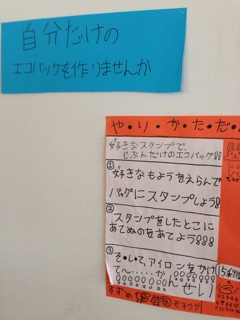 自分だけの
エコバックを作りませんか
や・り・か・た・だ・
好きなスタンプで、
じぶんだけのエコバッグ
①
好きなもようをえらんで
バッグにスタンプしよう!
②
スタンプをしたとこに
あてぬのをあてよう!!!
③
そ・し・て、アイロンをかけ
て〜.....か
んせい!